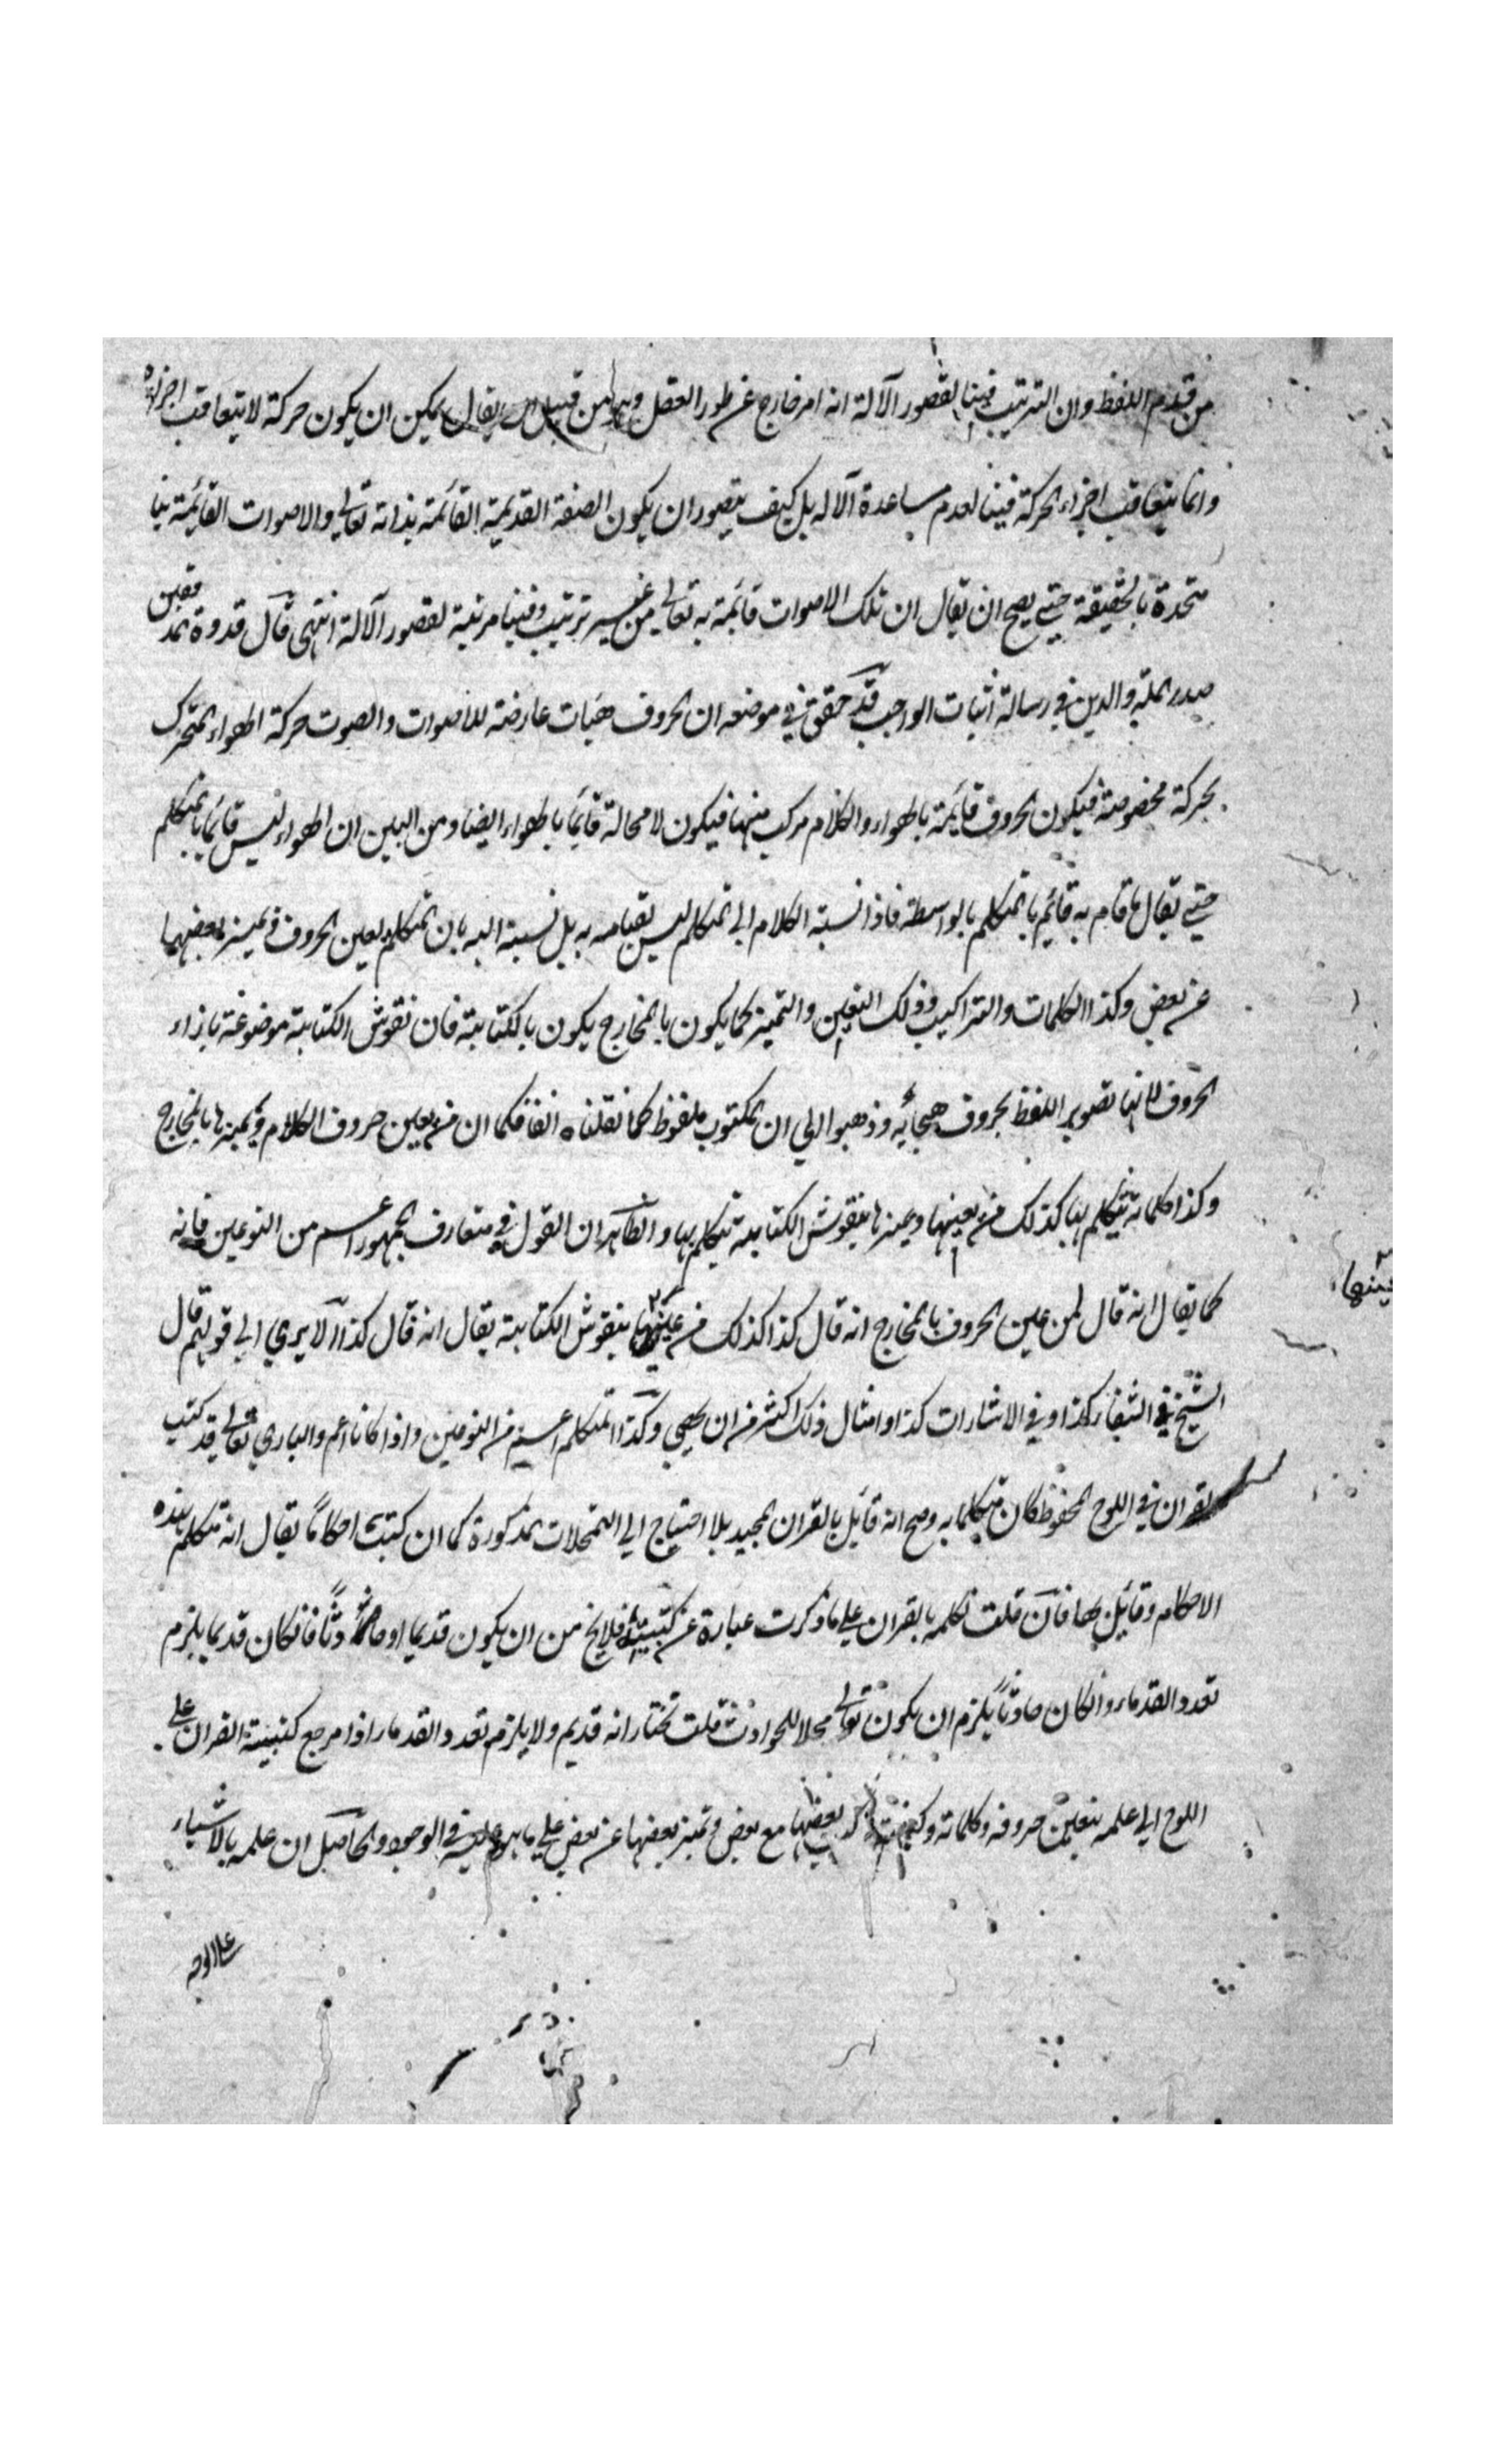 من قدم اللفظ وان الترتيب فينا لقصور الآلة انه امر خارج عن طور العقل وهل هو من قبيل ان يقال يمكن ان يكون حركة لا يتعاقب اجزاؤه
وانما يتعاقب اجزاء الحركة فينا لعدم مساعدة الآله بل كيف يتصور ان يكون الصفة القديمة القائمة بذاته تعالى والاصوات القائمة بنا
متحدة بالحقيقة حتى يصح ان يقال ان تلك الاصوات قائمة به تعالى من غير ترتيب وفينا مرتبة لقصور الآلة انتهى قال قدوة المدققين
صدر الملة والدين في رسالة اثبات الواجب قد حقق في موضعه ان الحروف هيات عارضة للاصوات والصوت حركة الهواء المتحرك
بحركة مخصوصة فيكون الحروف قائمة بالهواء والكلام مركب منها فيكون لا محالة قائما بالهواء ايضا ومن البين ان الهواء ليس قائما بالمتكلم
حتى يقال ما قام به قائم بالمتكلم بالواسطة فاذا نسبة الكلام الى المتكلم ليس بقيامه به بل نسبته اليه بان المتكلم يعين الحروف ويميز بعضها
عن بعض وكذا الكلمات والتراكيب وذلك التعين والتميز كما يكون بالمخارج يكون بالكتابة فان نقوش الكتابة موضوعة بازاء
الحروف لانها تصوير اللفظ بحروف هجائه وذهبوا الى ان المكتوب ملفوظ كما نقلناه انفا فكما ان من يعين حروف الكلام ويميزها بالمخارج
وكذا كلماته يتكلم بها كذلك من يعينها ويميزها بنقوش الكتابة يتكلم بها والظاهر ان القول في متعارف الجمهور اعم من النوعين فانه
كما يقال انه قال لمن عين الحروف بالمخارج انه قال كذا كذلك من عينها بنقوش الكتابة يقال انه قال كذا الا يرى الى قولهم قال
عينها
الشيخ في الشفاء كذا وفي الاشارات كذا وامثال ذلك اكثر من ان يحصى وكذا المتكلم اعم من النوعين واذا كانا اعم والباري تعالى قد كتب
القران في اللوح المحفوظ كان متكلما به وصح انه قائل بالقران المجيد بلا احتياج الى التمحلات المذكورة كما ان كتبت احكاما يقال انه متكلم بهذه
الاحكام وقائل بها فان قلت تكلمه بالقران على ما ذكرت عبارة عن كتبيته فلا يخ من ان يكون قديما او حادثا فان كان قديما يلزم
تعدد القدماء وان كان حادثا يلزم ان يكون تعالى محلا للحوادث قلت نختار انه قديم ولا يلزم تعدد القدماء اذا مرجع كتبيته القران على
اللوح الى علمه بتعين حروفه وكلماته بعضها مع بعض وتميز بعضها عن بعض على ما هو عليه في الوجود والحاصل ان علمه بالاشياء
على الوجه